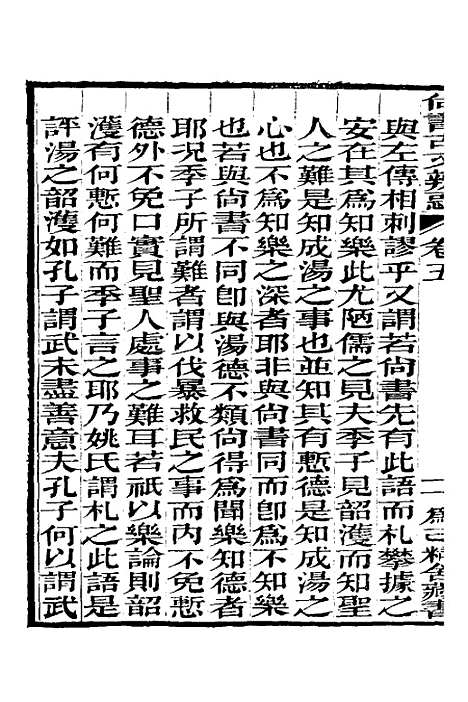 尚書古文辨惑 卷五 一 爲己精舍藏書
與左傳相刺謬乎又謂若尚書先有此語而札攀據之
安在其爲知樂此尤陋儒之見夫季子見韶濩而知聖
人之難是知成湯之事也並知其有慙德是知成湯之
心也不爲知樂之深者耶非與尚書同而卽爲不知樂
也若與尚書不同卽與湯德不類尚得爲聞樂知德者
耶況季子所謂難者謂以伐暴救民之事而內不免慙
德外不免口實見聖人處事之難耳若祇以樂論則韶
濩有何慙何難而季子言之耶乃姚氏謂札之此語是
評湯之韶濩如孔子謂武未盡善意夫孔子何以謂武